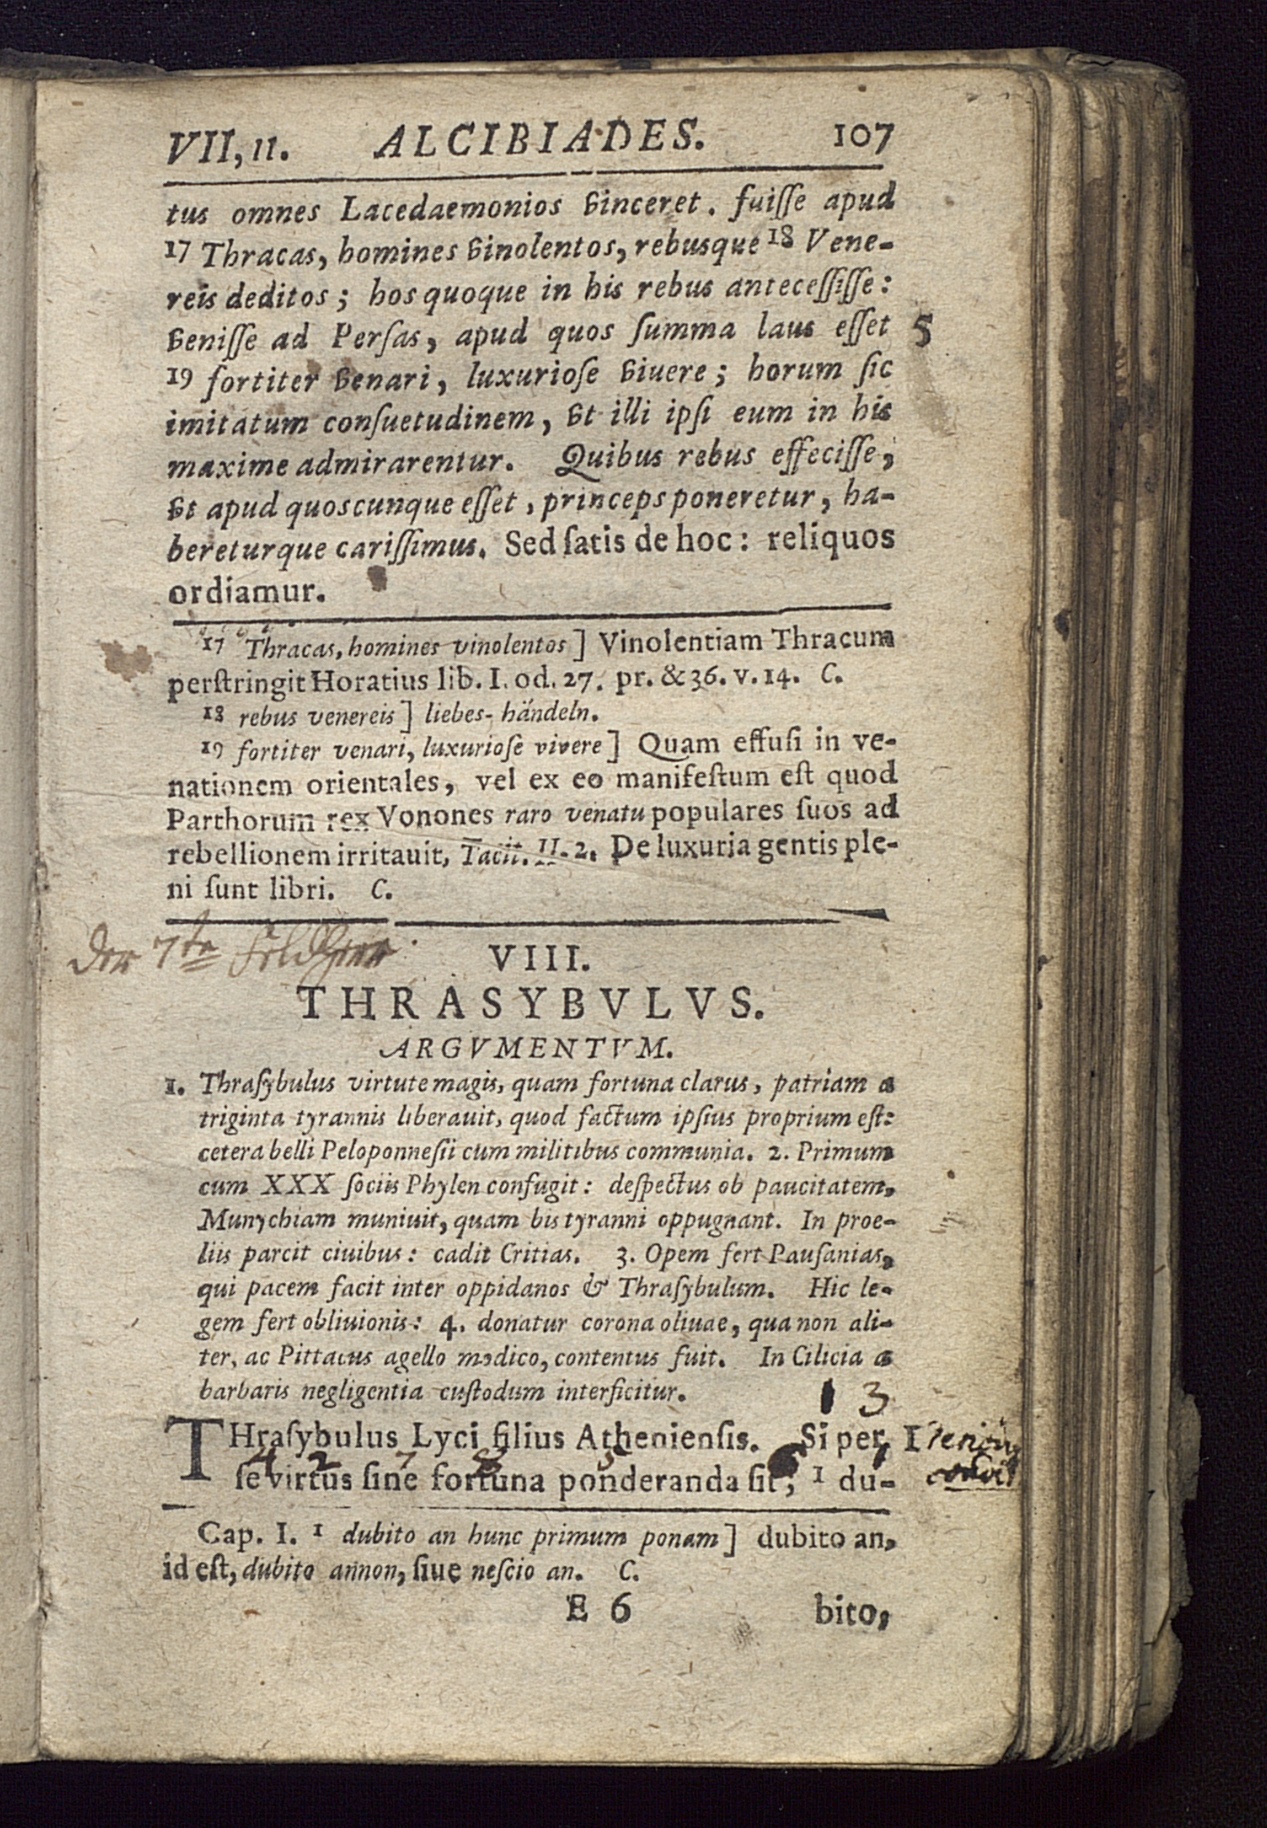 VII, 11. ALCIBIADES. 107
tus omnes Lacedaemonios vinceret. fuiſſe apud
17 Thracas, homines vinolentos, rebusque 18 Vene-
reis deditos; hos quoque in his rebus anteceſſiſſe:
veniſſe ad Perſas, apud quos ſumma laus eſſet 5
19 fortiter venari, luxurioſe viuere; horum ſic
imitatum conſuetudinem, vt illi ipſi eum in his
maxime admirarentur. Quibus rebus effeciſſe,
vt apud quoscunque eſſet, princeps poneretur, ha-
bereturque cariſſimus. Sed ſatis de hoc: reliquos
ordiamur.
17 Thracas, homines vinolentos] Vinolentiam Thracum
perſtringit Horatius lib. I. od. 27. pr. & 36. v. 14. C.
18 rebus venereis] liebes-händeln.
19 fortiter venari, luxurioſe vivere] Quam effuſi in ve-
nationem orientales, vel ex eo manifeſtum eſt quod
Parthorum rex Vonones raro venatu populares ſuos ad
rebellionem irritauit, Tacit. II. 2. De luxuria gentis ple-
ni ſunt libri. C.
Der 7te Feldherr
VIII.
THRASYBVLVS.
ARGVMENTVM.
1. Thraſybulus virtute magis, quam fortuna clarus, patriam a
triginta tyrannis liberauit, quod factum ipſius proprium eſt:
cetera belli Peloponneſii cum militibus communia. 2. Primum
cum XXX ſociis Phylen confugit: deſpectus ob paucitatem,
Munychiam muniuit, quam bis tyranni oppugnant. In proe-
liis parcit ciuibus: cadit Critias. 3. Opem fert Pauſanias,
qui pacem facit inter oppidanos & Thraſybulum. Hic le-
gem fert obliuionis: 4. donatur corona oliuae, qua non ali-
ter, ac Pittacus agello modico, contentus fuit. In Cilicia a
barbaris negligentia cuſtodum interficitur.
1 3
THraſybulus Lyci filius Athenienſis. Si per I
4 2 7 8 5 6
ſe virtus ſine fortuna ponderanda ſit, 1 du-
Cap. I. 1 dubito an hunc primum ponam] dubito an,
id eſt, dubito annon, ſiue neſcio an. C.
E 6 bito,